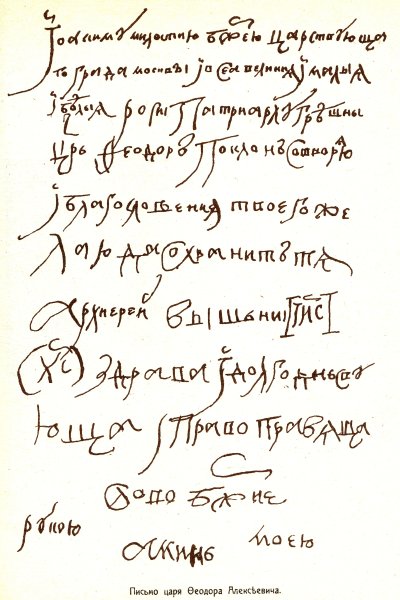 Іоакиму милостию бжею царствующа
го града москвы і всеа великия і малыя
і бѣлыя росиі Патриарху грѣшны
црь Ѳеодоръ Поклонъ сотворяю
і благословения твоего же
лаю да сохранитъ тя
Архиереи вышьниі [ІИС]
(ХС) здрава і долгоденьству
юща і право правяща
слово бжие
рукою моею
аминь
Письмо царя Ѳеодора Алексѣевича.